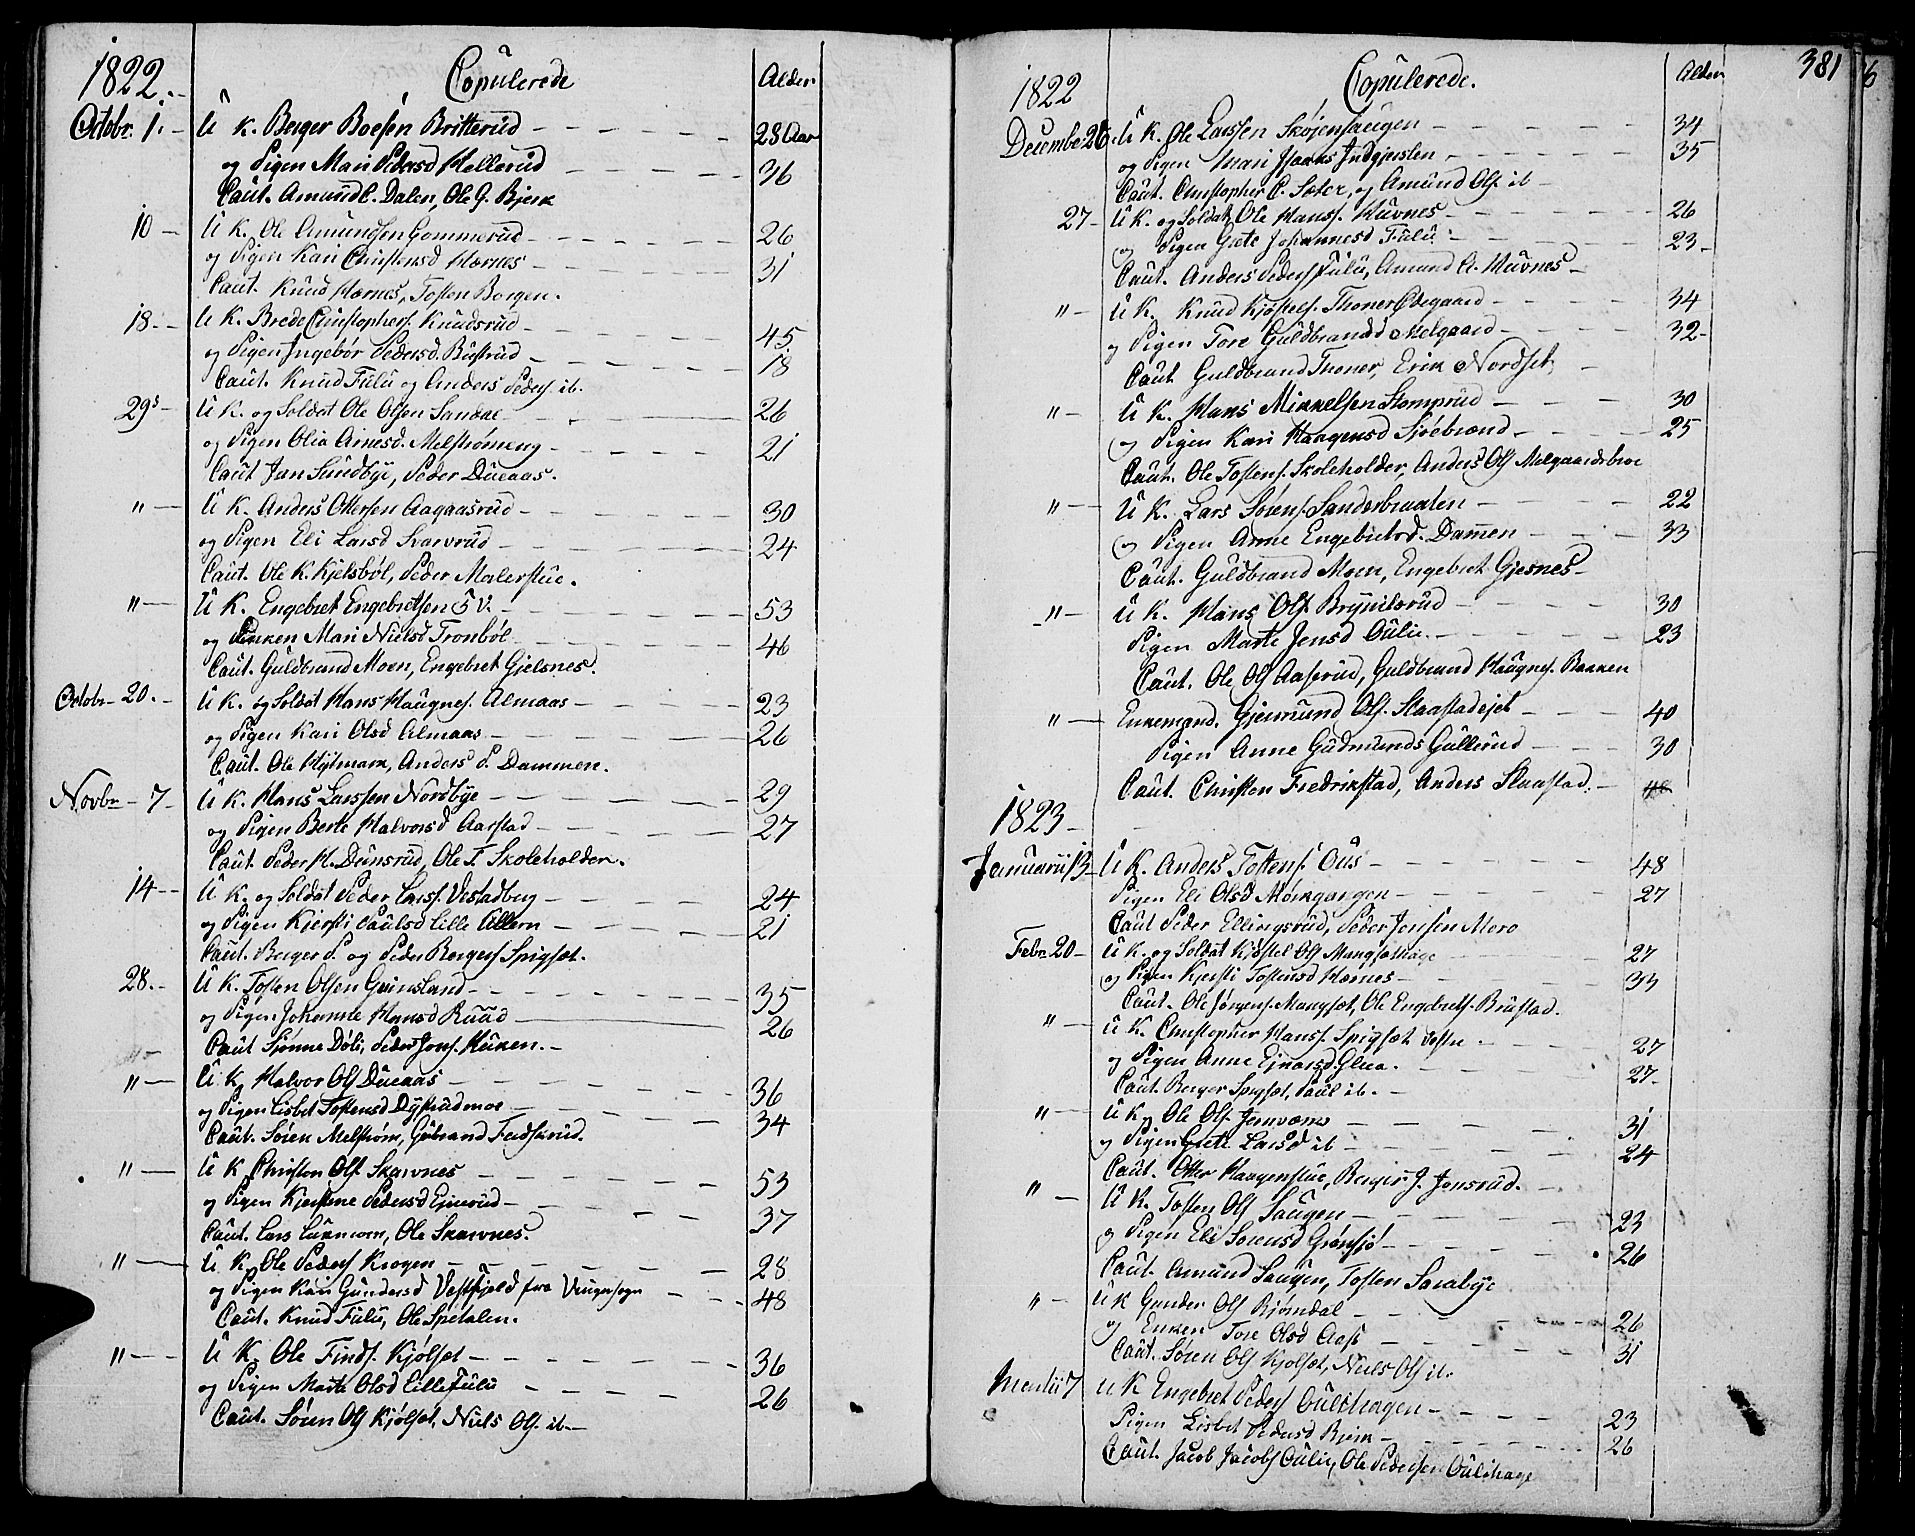 1822.
Copulerede
Alder
Octobr. 1. U K. Berger Boesen Britterud 28 Aar
og Pigen Mari Pedersd Hellerud 36
Caut. Amund C. Dalen, Ole G. Bjerk
10 U K. Ole Amundsen Gommerud 26
og Pigen Kari Christensd Hærnes 31
Caut. Knud Hærnes, Tosten Borgen.
18. U K. Brede Christophers. Knudsrud 45
og Pigen Ingebor Pedersd. Bustrud 18
Caut. Knud Fulu og Anders Peders. ib.
29 U K. og Soldat Ole Olsen Sandae 26
og Pigen Olia Arnesd. Melstrømeng 21
Caut Jan Sundbye, Peder Dueaas.
" U K. Anders Ottersen Aagaasrud 30
og Pigen Eli Larsd Svarvrud 24
Caut. Ole K. Kjelsbøl, Peder Malerstue.
" U K. Engebret Engebretsen 53
og Mari Nielsd Tronbøl 46
Caut. Guldbrand Moen, Engebret Gjelsnes.
Octobr 20. U K. og Soldat Hans Haagnes. Almaas 23
og Pigen Kari Olsd Almaas 26
Caut. Ole Hytmark, Anders P. Dammen.
Novbr 7 U K. Hans Larssen Nordbye 29
og Pigen Berte Halvorsd Aarstad 27
Caut. Peder H. Dunsrud, Ole T. Skoleholder.
14 U K. og Soldat Peder Larss. Vestadberg 24
og Pigen Kjersti Paulsd Lille Ullern 21
Caut. Berger P. og Peder Bergers Spigset.
28. U K. Tosten Olsen Grinsland 35
og Pigen Johanne Hansd Ruud 26
Caut Sjønne Døli, Peder Jons. Huken.
" U K Halvor Ols Dueaas 36
og Pigen Lisbet Tostensd Dystrudmoe 34
Caut. Søren Melstrøm, Gubrand Fredskrud.
" U K Christen Ols. Skarvnes 53
og Pigen Kjerstine Pedersd Ejnerud 37
Caut. Lars Lukmoen, Ole Skarvnes.
" U K. Ole Peders Krogen 28
og Pigen Kari Gundersd Vestfjeld fra Vingersogn 48
Caut. Knud Fulu, Ole Spetalen.
" U K. Ole Finds. Kjølset 36
og Pigen Marte Olsd Lille Fulu 26
Caut. Søren Ols Kjølset, Niels Ols. ib.
381
1822
Copulerede.
Alder
December 26. U K. Ole Larssen Skøjensaugen 34
og Pigen Mari Isaks Indgjerslen 35
Caut. Christopher C. Sæter, og Amund Ols. ib
27 U K. og Soldat Ole Hanss. Huvnes 26
og Pigen Grete Johannesd Fulu 23
Caut. Anders Peders Fulu, Amund A. Huvnes
" U K. Knud Kjøstels. Thoner Ødegaard 34
og Pigen Tore Guldbrandsd Melgaard 32
Caut Guldbrand Thoner, Erik Nordset
" U K. Hans Mikkelsen Stomprud 30
og Pigen Kari Haagensd Sjøebrænd 25
Caut. Ole Tostens. Skoleholder, Anders Ols Melgaardsbroe
" U K. Lars Sørens. Sanderbraaten 22
og Pigen Anne Engebretsd. Dammen 33
Caut. Guldbrand Moen, Engebret Gjesnes
" U K. Hans Ols. Brynilsrud 30
Pigen Marte Jensd Oulie 23
Caut. Ole Ols Aaserud, Guldbrand Haagnes. Bakken
" Enkemand. Gjermund Ols. Skaastadejet 40
Pigen Anne Gudmunds Gullerud 30
Caut. Christen Fredrikstad, Anders Skaastad.
1823
Januarii 13 U K. Anders Tostens. Ous 48
Pigen Eli Olsd Mørkgangen 27
Caut Peder Ellingsrud, Peder Jensen Moro
Febr. 20 U K. og Soldat Kjøstel Ols Mangsethage 27
og Pigen Kjersti Tostensd Hærnes 33
Caut. Ole Jørgens. Mangset, Ole Engebrets. Brustad.
" U K. Christopher Hanss. Spigset vestre 27
og Pigen Anne Ejnarsd. Glea. 27
Caut. Berger Spigset, Paul ib.
" U K. Ole Ols. Jernværns 31
og Pigen Grete Larsd ib 24
Caut. Otter Haagenstue, Berger J. Jonsrud.
" U K. Tosten Ols Saugen 23
og Pigen Eli Sørensd Grønsjø 26
Caut. Amund Saugen, Tosten Saxebye
" U K Gunder Ols Bjørndal 26
og Enken Tore Olsd Aas 31
Caut. Søren Ols Kjølset, Niels Ols ib.
Martii 7 U K Engebret Peders Oulihagen 23
Pigen Lisbet Pedersd Bjerk 26
Caut. Jacob Jacobs Oulie, Ole Pedersen Oulihage